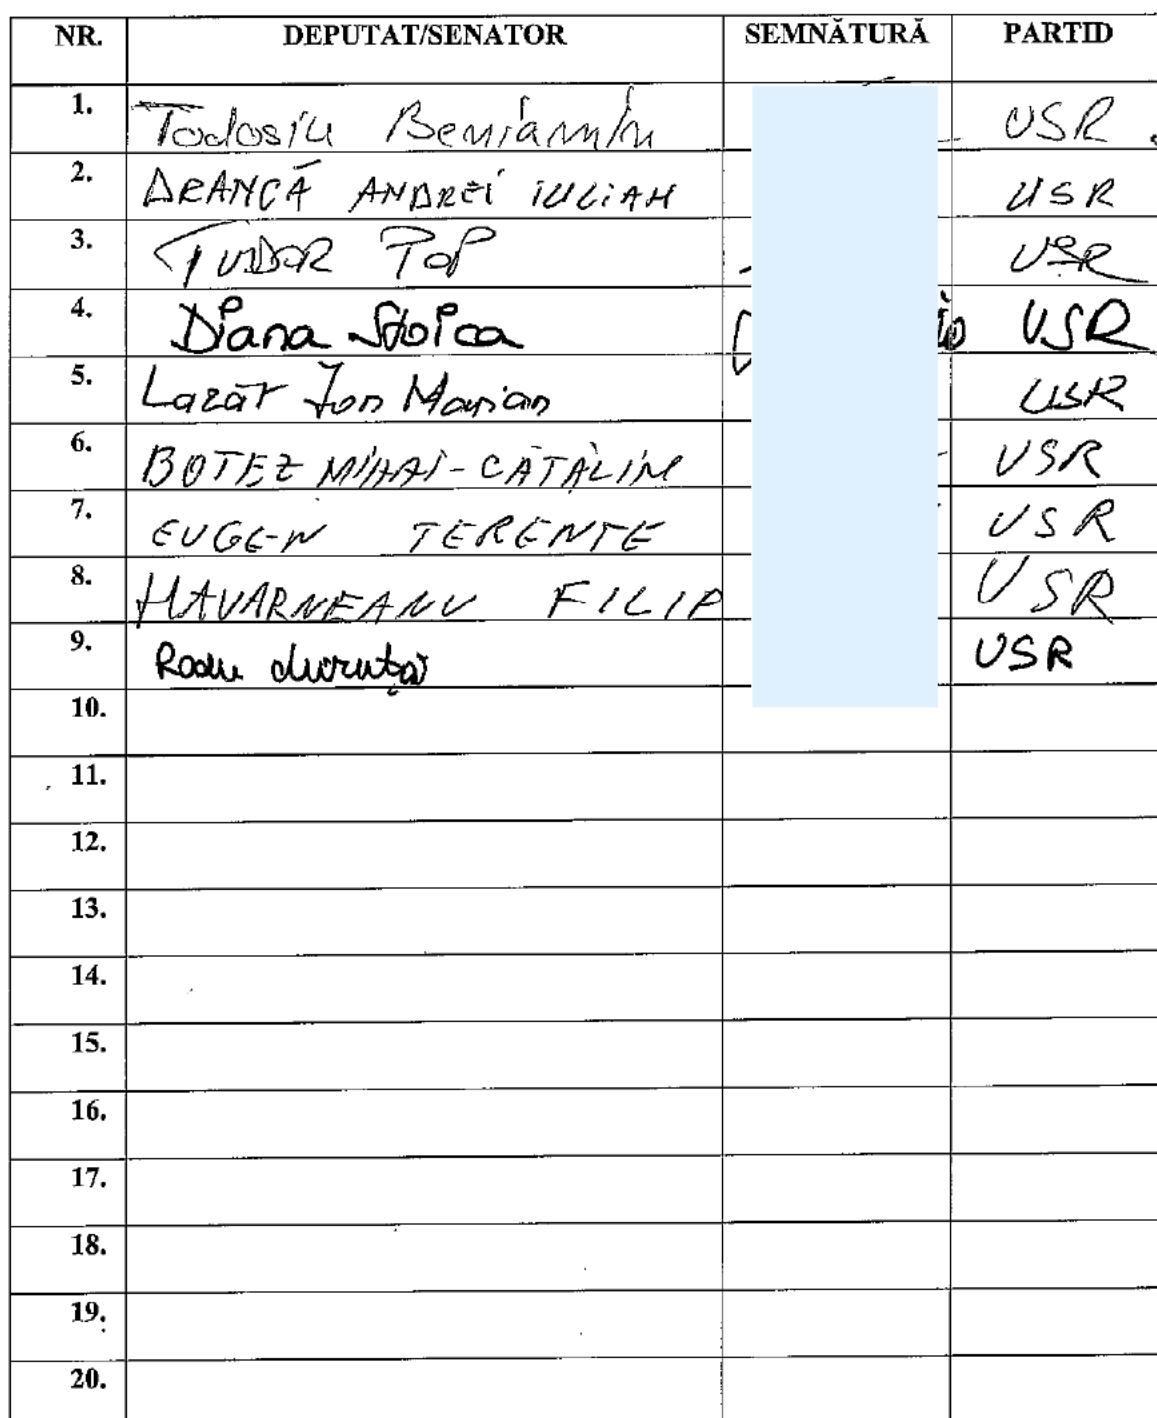 NR. DEPUTAT/SENATOR SEMNĂTURĂ PARTID
1. Todosiu Beniamin USR
2. DRANCĂ ANDREI IULIAN USR
3. TUDOR POP USR
4. Diana Stoica USR
5. Lazăr Ion Marian USR
6. BOTEZ MIHAI-CĂTĂLIN USR
7. EUGEN TERENTE USR
8. HAVARNEANU FILIP USR
9. Radu Miruță USR
10.
11.
12.
13.
14.
15.
16.
17.
18.
19.
20.